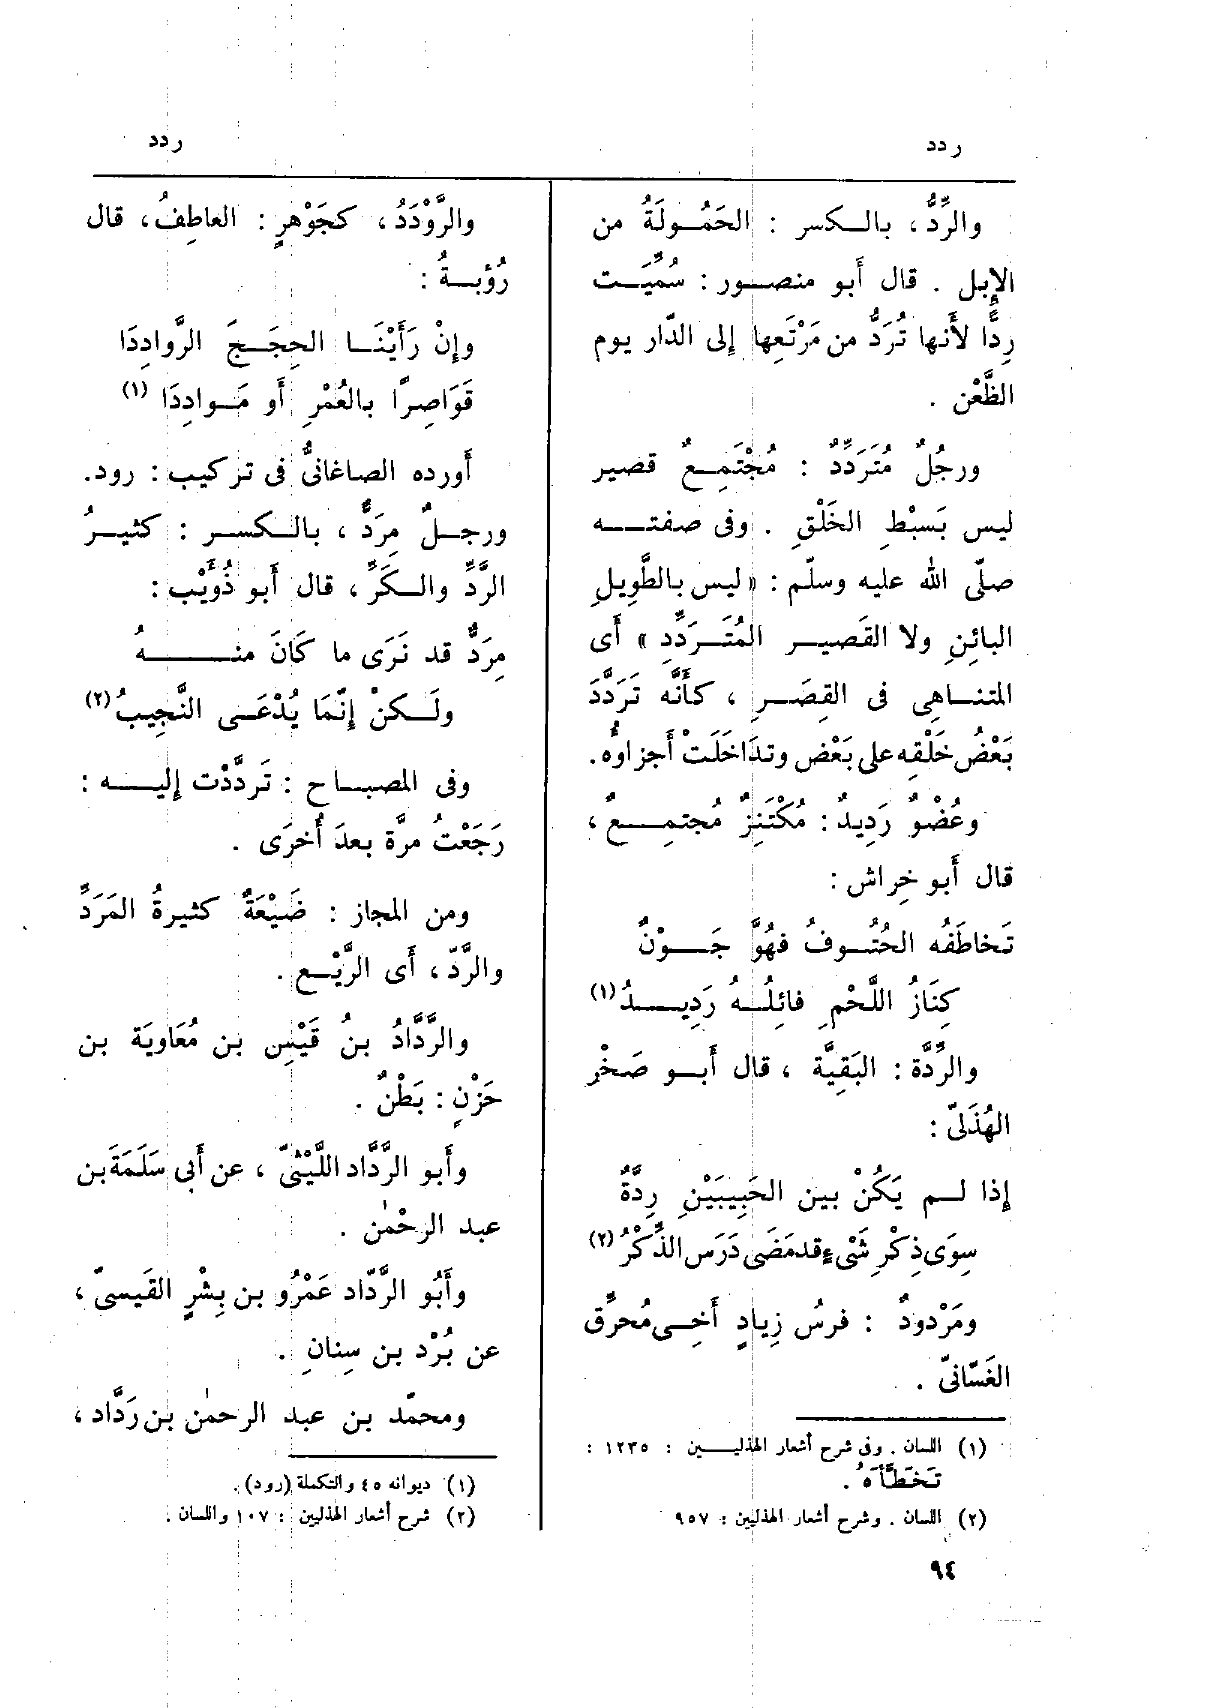 ردد
ردد
والرِّدُّ، بالكسر : الحَمُولَةُ من
الإِبل . قال أَبو منصور : سُمِّيَت
رِدًّا لأَنها تُرَدُّ من مَرْتَعِها إلى الدّار يوم
الظَّعْن .
ورجُلٌ مُتَردِّدٌ : مُجْتَمِعٌ قصير
ليس بَسبْطِ الخَلْقِ . وفى صفته
صلّى الله عليه وسلّم : « ليس بالطَّوِيلِ
البائِنِ ولا القَصِير المُتَرَدِّدِ » أَى
المتناهِى فى القِصَرِ ، كأَنَّه تَرَدَّدَ
بَعْضُ خَلْقِه على بَعْض وتدَاخَلَتْ أَجزاوُّه.
وعُضْوٌ رَدِيدٌ : مُكْتَنِزٌ مُجتمِعٌ ،
قال أَبو خِراش :
تَخاطَفُه الحُتُوفُ فهُوَّ جَوْنٌ
كِنَازُ اللَّحْمِ فائِلُهُ رَدِيدُ (١)
والرِّدَّة : البَقِيَّة ، قال أَبو صَخْر
الهُذَلىّ :
إذا لم يَكُنْ بين الحَبِيبَيْنِ رِدَّةٌ
سِوَى ذِكْرِ شَىْءٍ قد مَضَى دَرَس الذِّكْرُ (٢)
ومَرْدودٌ : فرسُ زِيادٍ أَخِى مُحرِّق
الغَسّانىّ .
(١) اللسان . وفى شرح أشعار الهذليين : ١٢٣٥ :
تَخَطَّأَهُ .
(٢) اللسان . وشرح أشعار الهذليين : ٩٥٧
والرَّوْدَدُ ، كجَوْهرٍ : العاطِفُ ، قال
رُؤبةُ :
وإنْ رَأَيْنَا الحِجَجَ الرَّوادِدَا
قَوَاصِرًا بالعُمْرِ أَو مَوادِدَا (١)
أَورده الصاغانىُّ فى تركيب : رود.
ورجلٌ مِرَدٌّ ، بالكسر : كثيرُ
الرَّدِّ والكَرِّ ، قال أَبو ذُؤَيْب :
مِرَدٌّ قد نَرَى ما كَانَ منهُ
ولَكنْ إنَّمَا يُدْعَى النَّجِيبُ (٢)
وفى المصباح : تَردَّدْت إليه :
رَجَعْتُ مرَّة بعدَ أُخرَى .
ومن المجاز : ضَيْعَةٌ كثيرةُ المَرَدِّ
والرَّدّ ، أَى الرَّيْع .
والرَّدَّادُ بنُ قَيْسِ بن مُعَاويَة بن
حَزْنٍ : بَطْنٌ .
وأَبو الرَّدَّاد اللَّيْثىّ ، عن أَبى سَلَمَةَ بن
عبد الرحْمٰن .
وأَبُو الرَّدّاد عَمْرُو بن بِشْرٍ القَيسىّ ،
عن بُرْد بن سِنانِ .
ومحمّد بن عبد الرحمٰن بن رَدَّاد ،
(١) ديوانه ٤٥ والتكملة (رود) .
(٢) شرح أشعار الهذليين : ١٠٧ واللسان .
٩٤